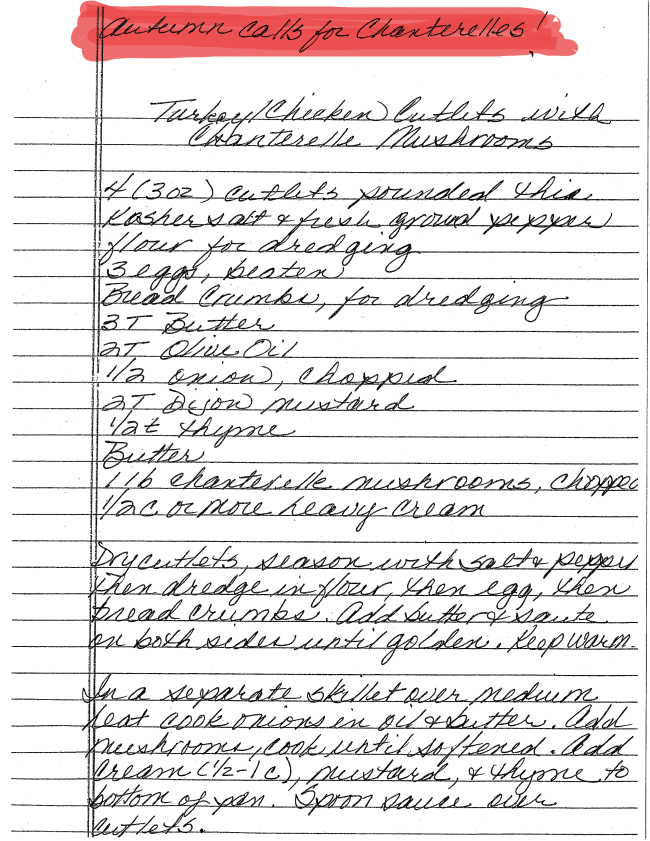 Autumn calls for Chanterelles!
Turkey/(Chicken) Cutlets with
Chanterelle Mushrooms
4 (3oz) cutlets pounded thin
Kosher salt & fresh ground pepper
flour for dredging
3 eggs, beaten
Bread Crumbs, for dredging
3T Butter
2T Olive Oil
1/2 onion, chopped
2T Dijon mustard
1/2t thyme
Butter
1 lb chanterelle mushrooms, chopped
1/2 c or more heavy cream
Dry cutlets, season with salt & pepper
then dredge in flour, then egg, then
bread crumbs. Add butter & saute
on both sides until golden. Keep warm.
In a separate skillet over medium
heat cook onions in oil & butter. Add
mushrooms, cook until softened. Add
cream (1/2-1c), mustard, & thyme to
bottom of pan. Spoon sauce over
cutlets.